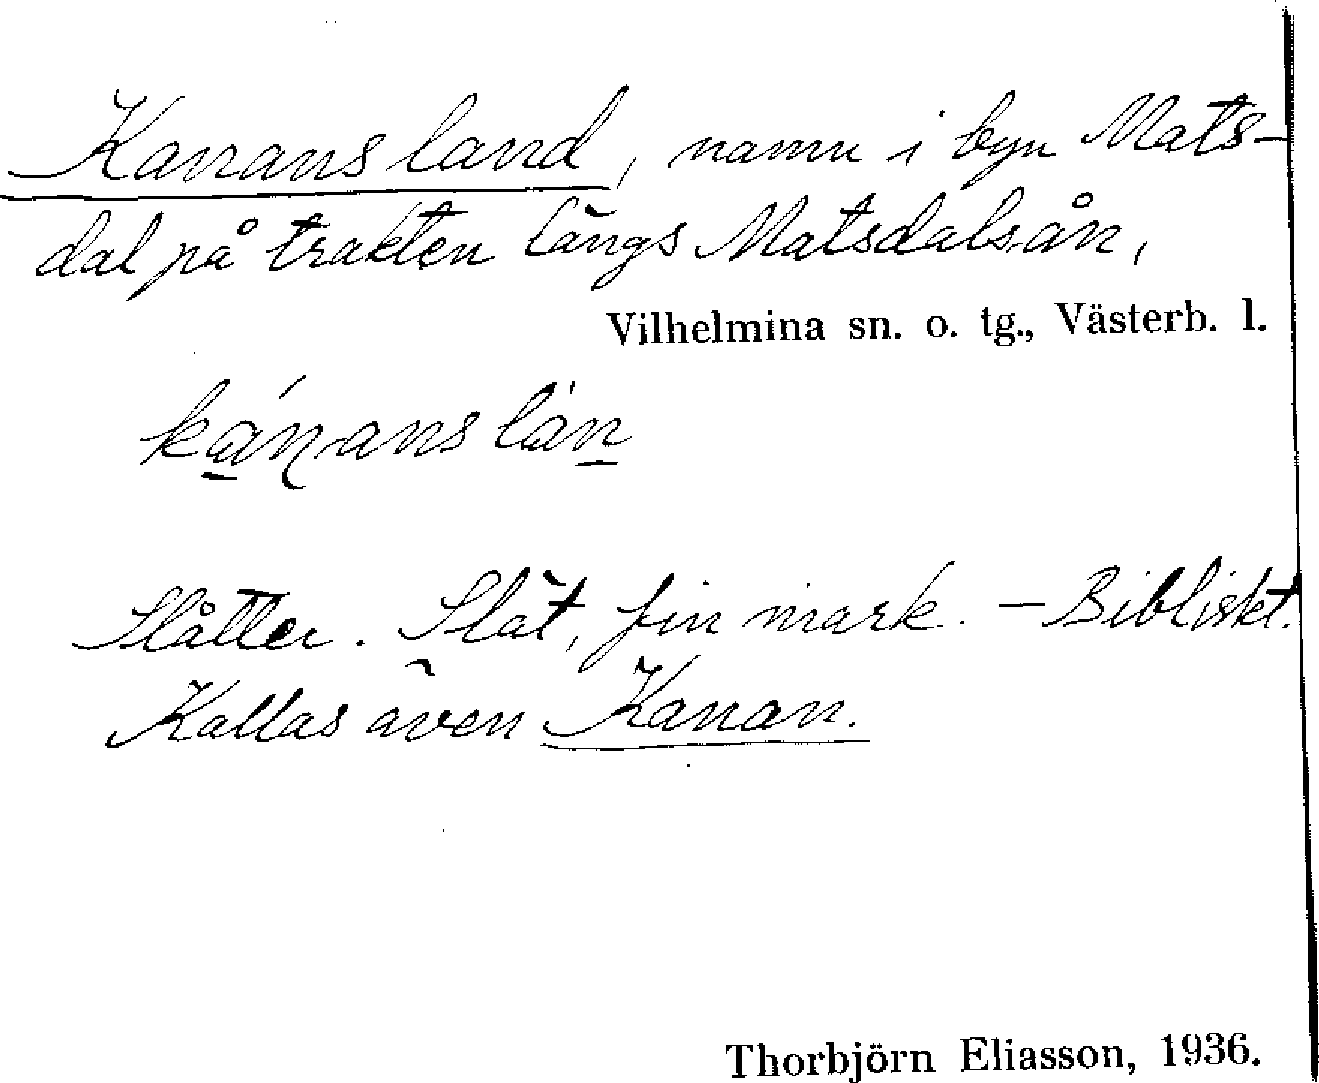 Kanans land, namn i byn Mats-
dal på trakten längs Matsdalsån,
Vilhelmina sn. o. tg., Västerb. l.
Slåtter. Slät, fin mark. – Bibliskt.
Kallas även Kanan.
Thorbjörn Eliasson, 1936.